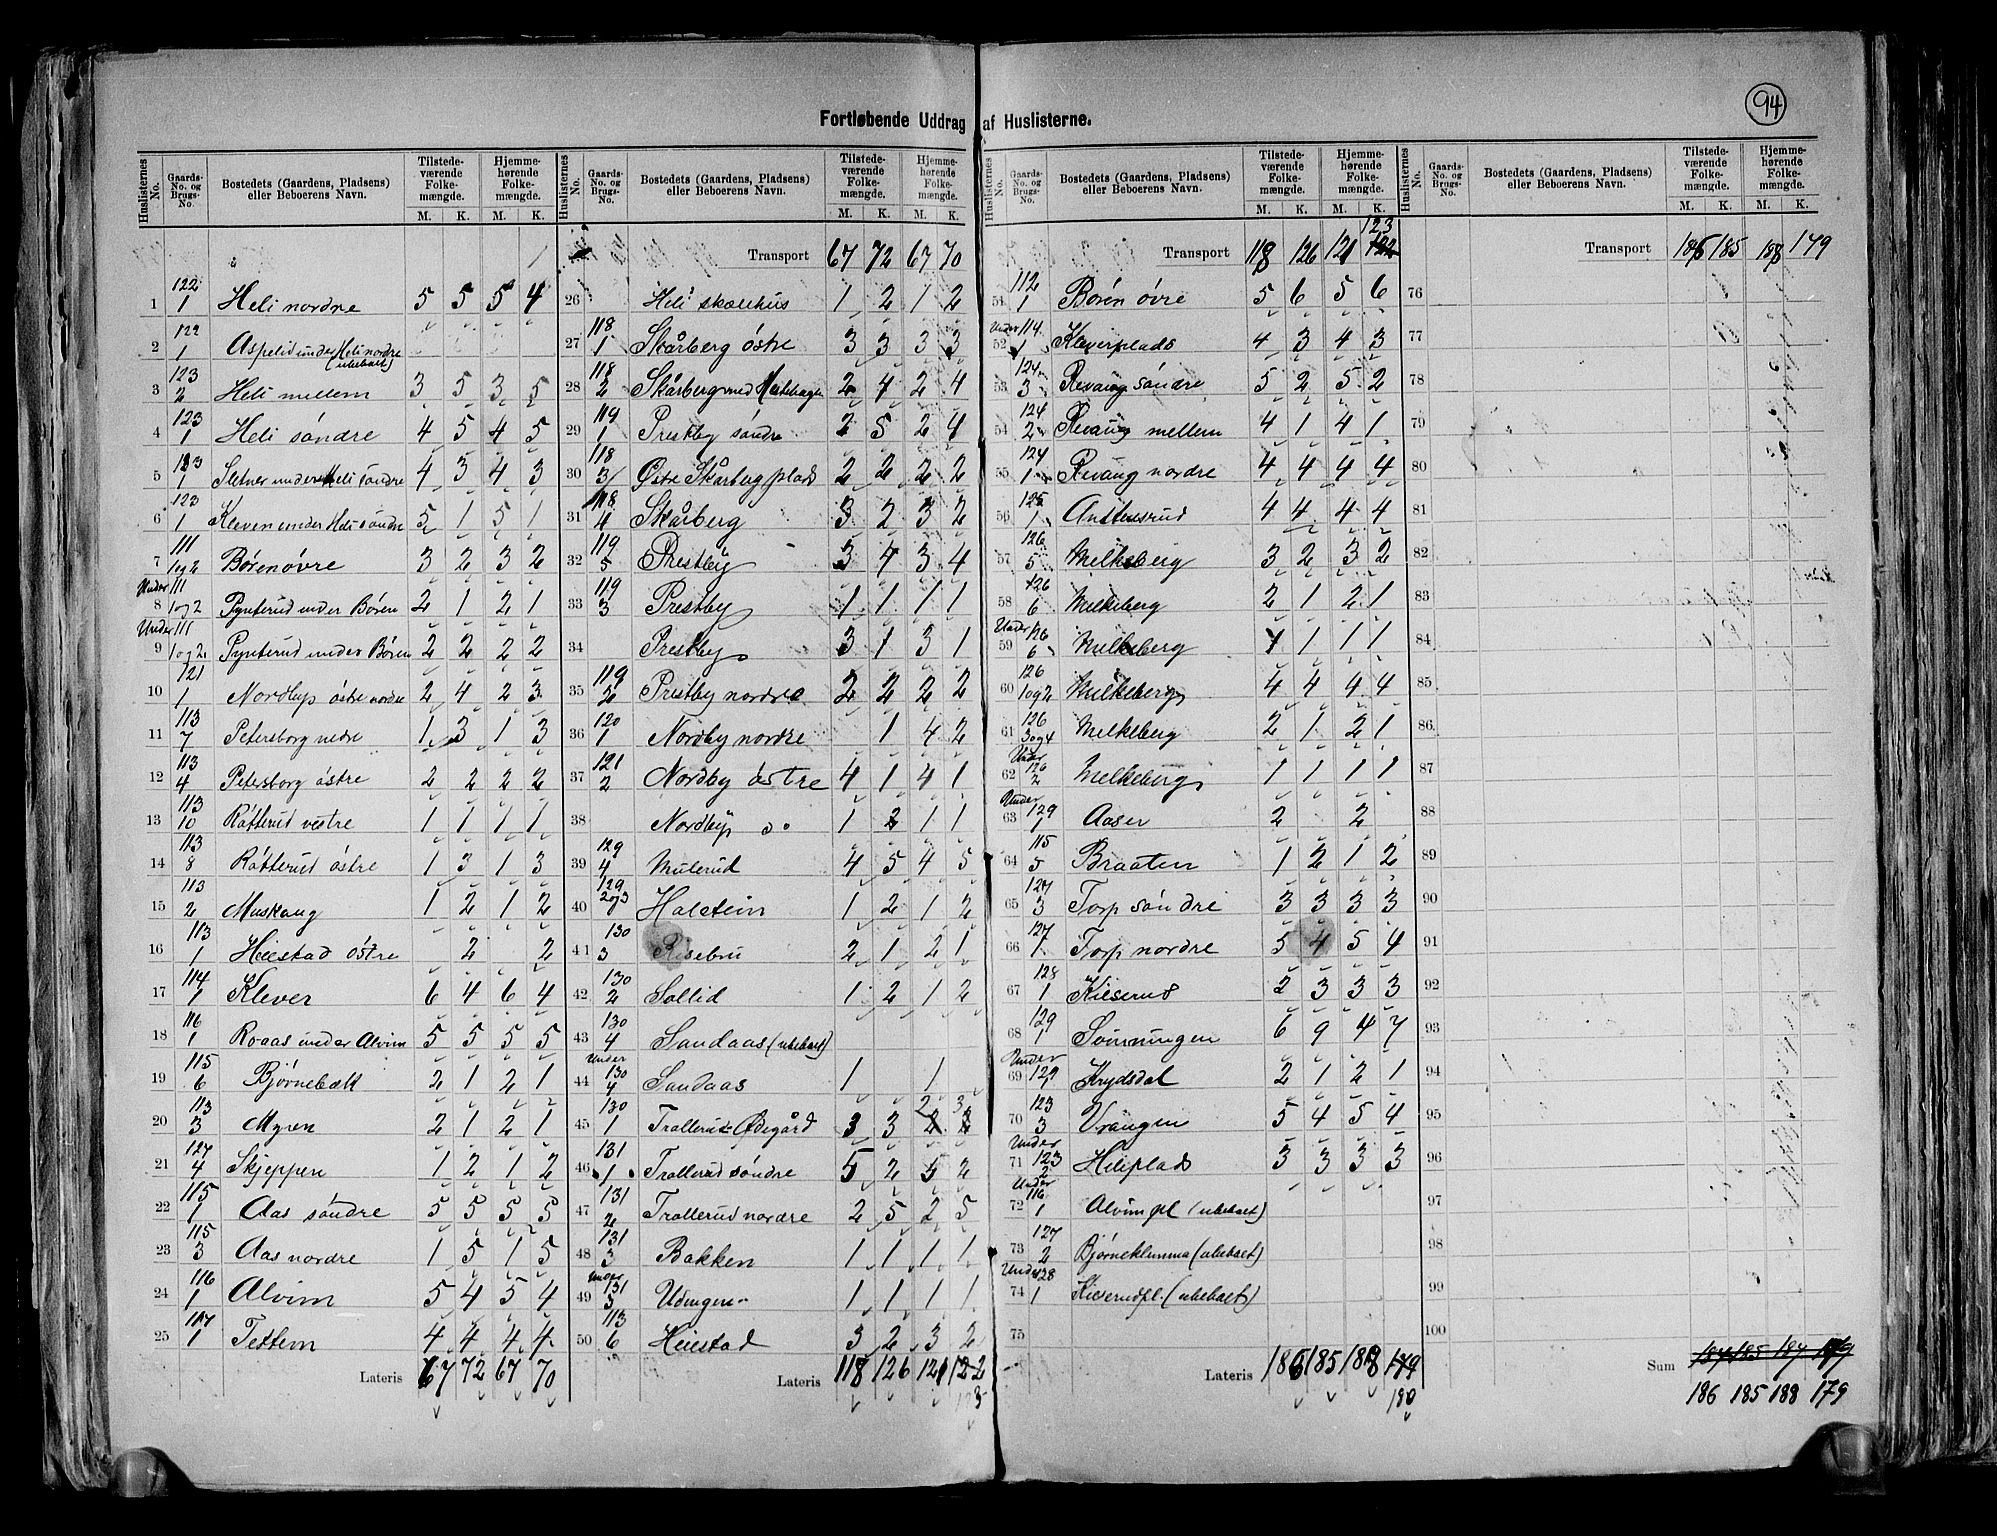 94
Fortløbende Uddrag af Huslisterne.
Huslisternes No. | Gaards-No. og Brugs-No. | Bostedets (Gaardens, Pladsens) eller Beboerens Navn. | Tilstedeværende Folkemængde. M. K. | Hjemmehørende Folkemængde. M. K.
1 | 122 1 | Heli nordre | 5 | 5 | 5 | 4
2 | 122 1 | Aspelid under Heli nordre (ubeboet)
3 | 123 2 | Heli mellem | 3 | 5 | 3 | 5
4 | 123 1 | Heli søndre | 4 | 5 | 4 | 5
5 | 123 1 | Sletner under Heli søndre | 4 | 3 | 4 | 3
6 | 123 1 | Kleven under Heli søndre | 5 | 1 | 5 | 1
7 | 111 1 og 2 | Børen øvre | 3 | 2 | 3 | 2
8 | Under 111 1 og 2 | Pynterud under Børen | 2 | 1 | 2 | 1
9 | Under 111 1 og 2 | Pynterud under Børen | 2 | 2 | 2 | 2
10 | 121 1 | Nordby østre nordre | 2 | 4 | 2 | 3
11 | 113 7 | Petersborg nedre | 1 | 3 | 1 | 3
12 | 113 4 | Petersborg østre | 2 | 2 | 2 | 2
13 | 113 10 | Røtterud vestre | 1 | 1 | 1 | 1
14 | 113 8 | Røtterud østre | 1 | 3 | 1 | 3
15 | 113 2 | Muskaug | 1 | 2 | 1 | 2
16 | 113 1 | Heiestad østre | 2 | 2
17 | 114 1 | Klever | 6 | 4 | 6 | 4
18 | 116 1 | Roaas under Alvim | 5 | 5 | 5 | 5
19 | 115 6 | Bjørnebæk | 2 | 1 | 2 | 1
20 | 113 3 | Myren | 2 | 1 | 2 | 1
21 | 127 4 | Skjeppen | 1 | 2 | 1 | 2
22 | 115 1 | Aas søndre | 5 | 5 | 5 | 5
23 | 115 3 | Aas nordre | 1 | 5 | 1 | 5
24 | 116 1 | Alvim | 5 | 4 | 5 | 4
25 | 117 1 | Tettem | 4 | 4 | 4 | 4
Lateris | 67 | 72 | 67 | 70
Huslisternes No. | Gaards-No. og Brugs-No. | Bostedets (Gaardens, Pladsens) eller Beboerens Navn. | Tilstedeværende Folkemængde. M. K. | Hjemmehørende Folkemængde. M. K.
Transport | 67 | 72 | 67 | 70
26 | Heli skolehus | 1 | 2 | 1 | 2
27 | 118 1 | Skårberg østre | 3 | 3 | 3 | 3
28 | 118 2 | Skårberg med | 2 | 4 | 2 | 4
29 | 119 1 | Prestby søndre | 2 | 5 | 2 | 4
30 | 118 3 | Østre Skårberg plads | 2 | 2 | 2 | 2
31 | 118 4 | Skårberg | 3 | 2 | 3 | 2
32 | 119 5 | Prestby | 3 | 4 | 3 | 4
33 | 119 3 | Prestby | 1 | 1 | 1 | 1
34 | Prestby | 3 | 1 | 3 | 1
35 | 119 2 | Prestby nordre | 2 | 2 | 2 | 2
36 | 120 1 | Nordby nordre | 1 | 4 | 2
37 | 121 2 | Nordby østre | 4 | 1 | 4 | 1
38 | Nordby | 1 | 2 | 1 | 1
39 | 129 4 | Mulerud | 4 | 5 | 4 | 5
40 | 129 2 og 3 | Holstein | 1 | 2 | 1 | 2
41 | 130 3 | Risebru | 2 | 1 | 2 | 1
42 | 130 2 | Sollid | 1 | 2 | 1 | 2
43 | 130 4 | Sandaas (ubeboet)
44 | Under 130 4 | Sandaas | 1 | 1
45 | 130 1 | Trollerud Ødegård | 3 | 3 | 2 | 3
46 | 131 1 | Trollerud søndre | 5 | 2 | 5 | 2
47 | 131 2 | Trollerud nordre | 2 | 5 | 2 | 5
48 | 131 3 | Bakken | 1 | 1 | 1 | 1
49 | under 131 3 | Udengen | 1 | 1 | 1 | 1
50 | 113 6 | Heiestad | 3 | 2 | 3 | 2
Lateris | 118 | 126 | 121 | 122
123
Huslisternes No. | Gaards-No. og Brugs-No. | Bostedets (Gaardens, Pladsens) eller Beboerens Navn. | Tilstedeværende Folkemængde. M. K. | Hjemmehørende Folkemængde. M. K.
123
Transport | 118 | 126 | 121 | 122
51 | 112 1 | Børen øvre | 5 | 6 | 5 | 6
52 | Under 114 1 | Kleverplads | 4 | 3 | 4 | 3
53 | 124 3 | Revaug søndre | 5 | 2 | 5 | 2
54 | 124 2 | Revaug mellem | 4 | 1 | 4 | 1
55 | 124 1 | Revaug nordre | 4 | 4 | 4 | 4
56 | 125 1 | Anthusrud | 4 | 4 | 4 | 4
57 | 126 5 | Melkeberg | 3 | 2 | 3 | 2
58 | 126 6 | Melkeberg | 2 | 1 | 2 | 1
59 | Under 126 6 | Melkeberg | 1 | 1 | 1 | 1
60 | 126 1 og 2 | Melkeberg | 4 | 4 | 4 | 4
61 | 126 3 og 4 | Melkeberg | 2 | 1 | 2 | 1
62 | Under 126 2 | Melkeberg | 1 | 1 | 1 | 1
63 | Under 129 1 | Aaser | 2 | 2
64 | 115 5 | Braaten | 1 | 2 | 1 | 2
65 | 127 3 | Torp søndre | 3 | 3 | 3 | 3
66 | 127 1 | Torp nordre | 5 | 4 | 5 | 4
67 | 128 1 | Kieserud | 2 | 3 | 3 | 3
68 | 129 1 | Sønningen | 6 | 9 | 4 | 7
69 | Under 129 1 | Krydsdal | 2 | 1 | 2 | 1
70 | 123 3 | Vrangen | 5 | 4 | 5 | 4
71 | Under 123 2 | Heliplads | 3 | 3 | 3 | 3
72 | Under 116 1 | Alvim pl. (ubeboet)
73 | 127 2 | Bjørneklumma (ubeboet)
74 | Under 128 1 | Kieserudpl. (ubeboet)
75
Lateris | 186 | 185 | 188 | 179
180
Huslisternes No. | Gaards-No. og Brugs-No. | Bostedets (Gaardens, Pladsens) eller Beboerens Navn. | Tilstedeværende Folkemængde. M. K. | Hjemmehørende Folkemængde. M. K.
Transport | 186 | 185 | 188 | 179
76
77
78
79
80
81
82
83
84
85
86
87
88
89
90
91
92
93
94
95
96
97
98
99
100
Sum | 184 | 185 | 187 | 179
186 | 185 | 188 | 179